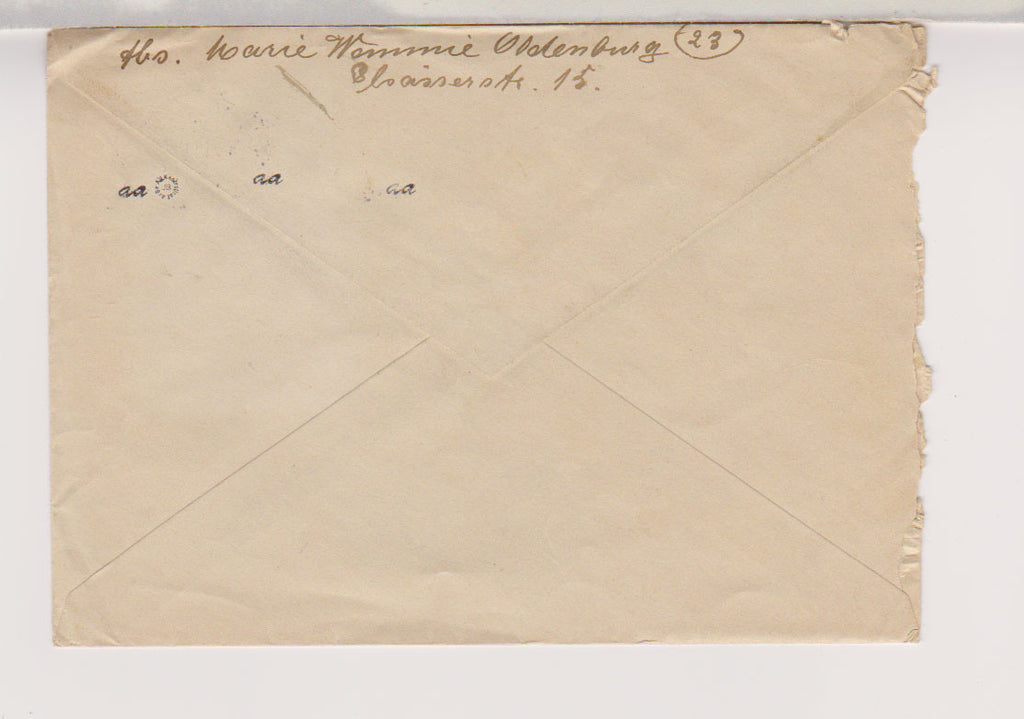 Abs. Marie Wemmie Oldenburg (23)
Elsässerstr. 15.
aa aa aa